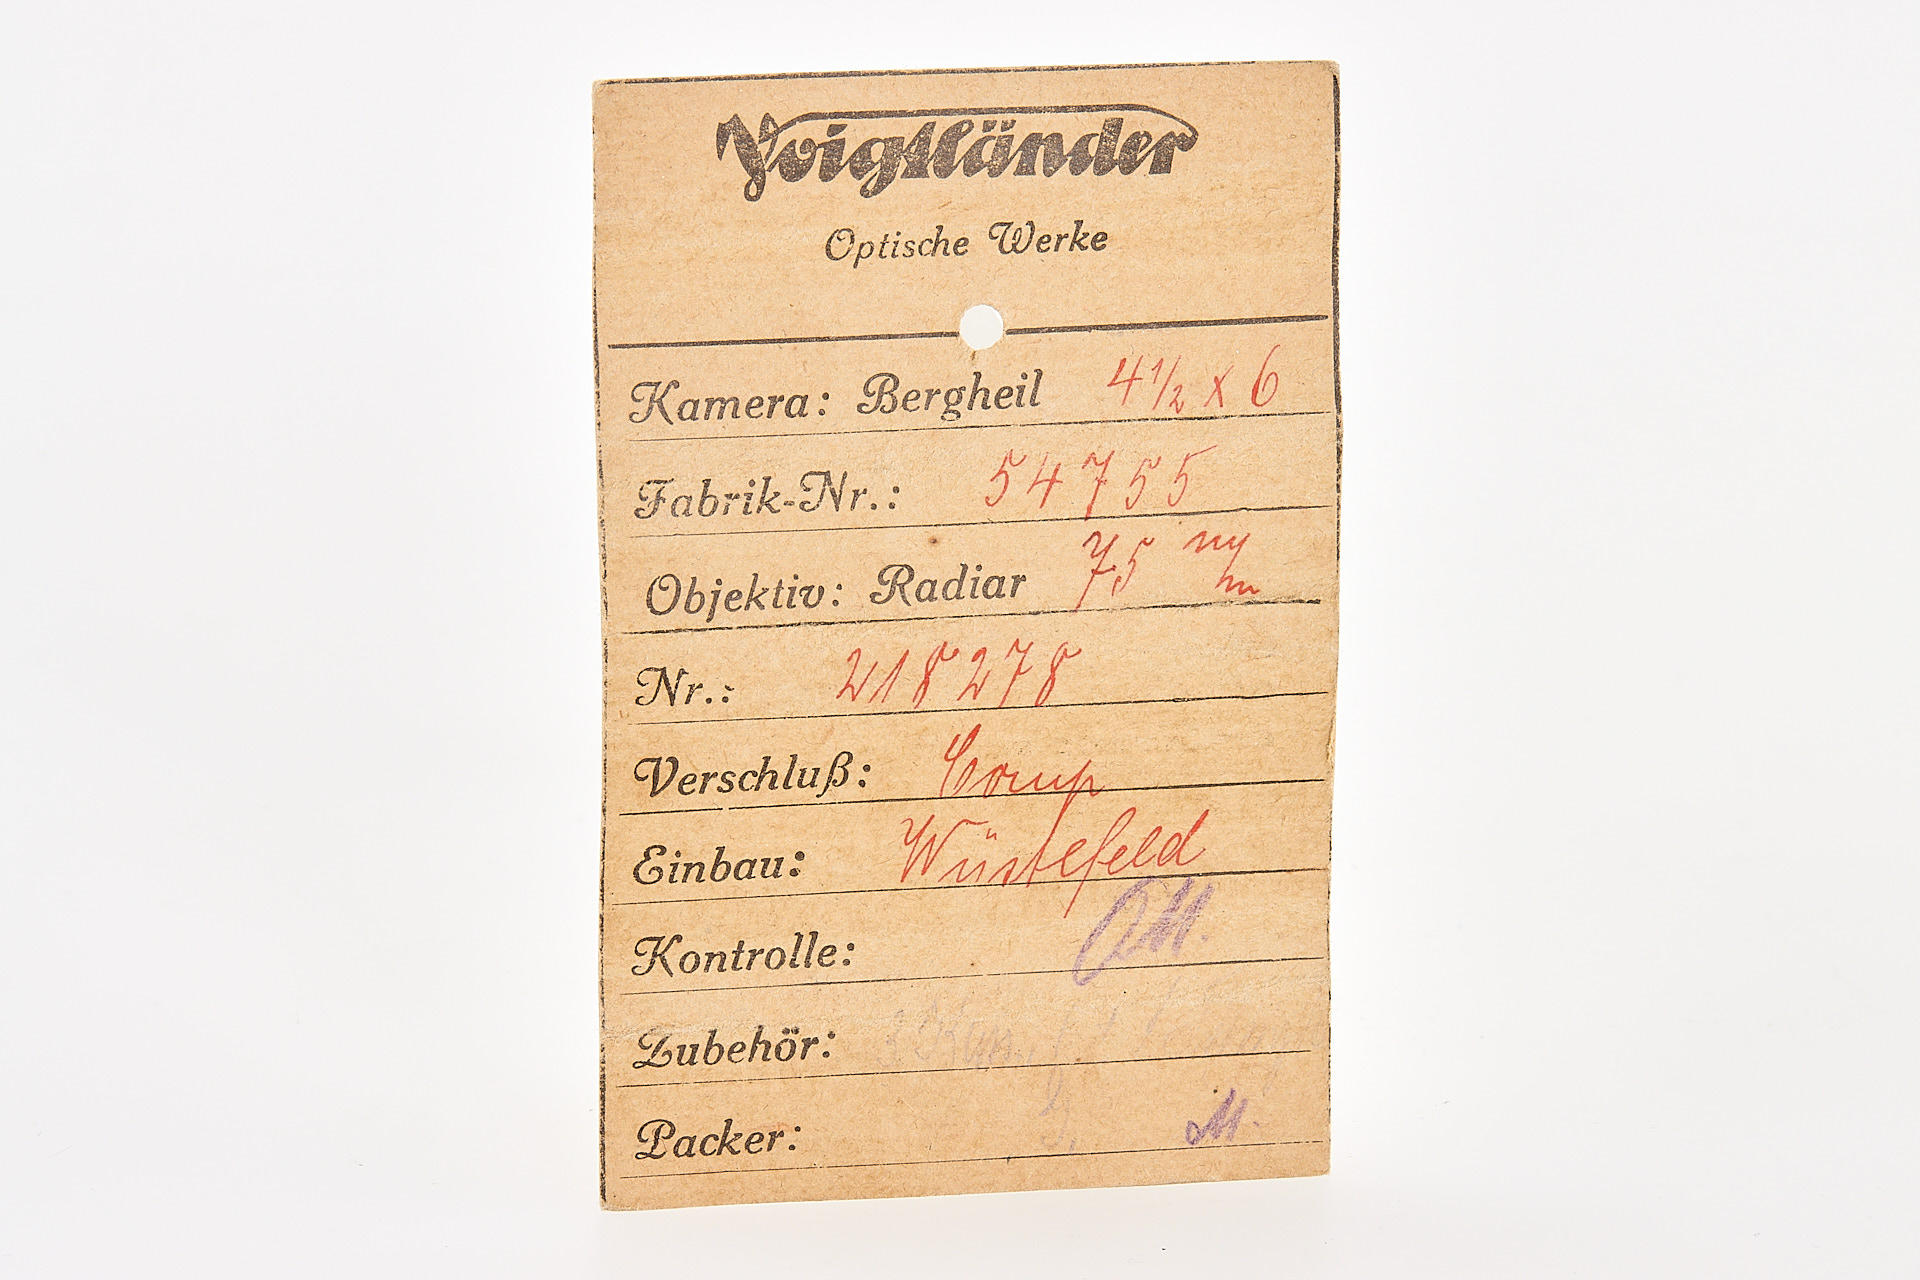 Voigtländer
Optische Werke
Kamera: Bergheil 4 1/2 x 6
Fabrik-Nr.: 54755
Objektiv: Radiar 75 m/m
Nr.: 218278
Verschluß: Comp
Einbau: Wüstefeld
Kontrolle:
Zubehör:
Packer: M.